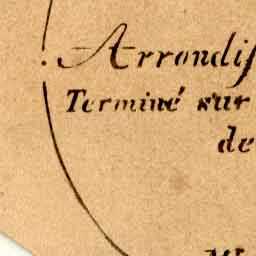 Arrondis
Terminé sur
de